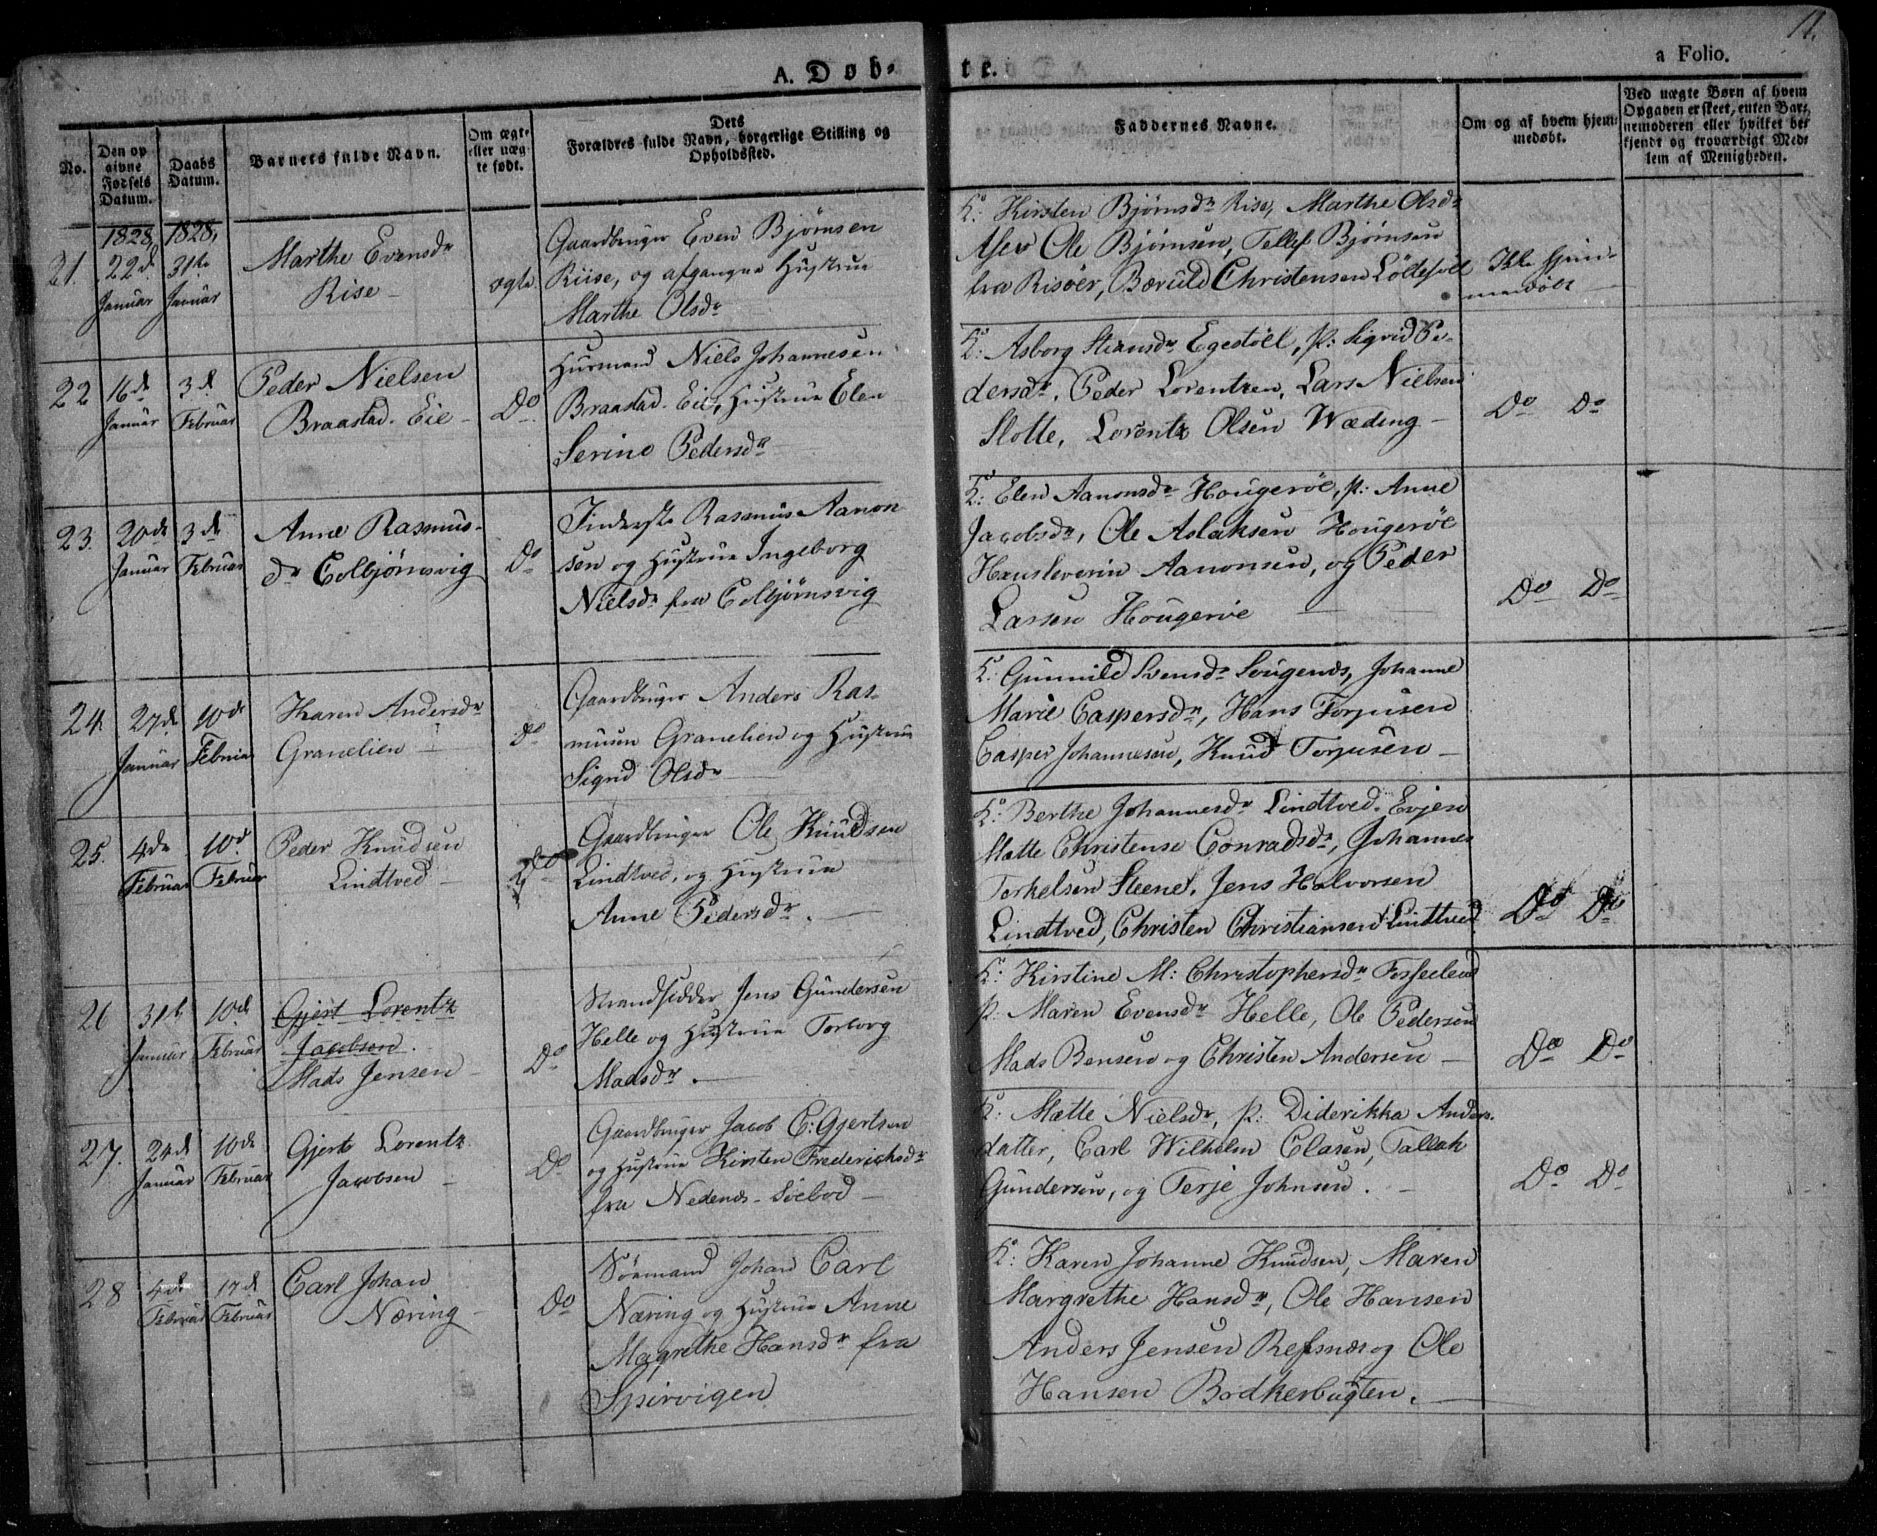 11.
A. Døb-
te.
a Folio.
No.
Den op
givne
Fødsels
Datum.
Daabs
Datum.
Barnets fulde Navn.
Om ægte
eller uæg-
te født.
Dets
Forældres fulde Navn, borgerlige Stilling og
Opholdssted.
Faddernes Navne.
Om og af hvem hjem-
medøbt.
Ved uægte Børn af hvem
Opgaven er skeet, enten Bar-
nemoderen eller hvilket be-
kjendt og troværdigt Med-
lem af Menigheden.
1828, 1828,
21.
22d
Januar
31te
Januar
Marthe Evensdr
Rise
ægte
Gaardbruger Even Bjørnsen
Riise, og afgangne Hustrue
Marthe Olsdr
K: Kirsten Bjørnsdr Rise, Marthe Olsdr
Ole Bjørnsen, Tellef Bjørnsen
fra Risøer, Bæruld Christensen Løddesøl
Ikke hjem-
medøbt
22
16d
Januar
3d
Februar
Peder Nielsen
Braastad-Eie
Do
Huusmand Niels Johannesen
Braastad-Eie, Hustrue Elen
Serine Pedersdr
K: Asborg Stiansdr Egestøll, p: Sigrid Pe-
dersdr, Peder Lorentzen, Lars Nielsen
Slotte, Lorentz Olsen Wæding
Do Do
23.
20de
Januar
3de
Februar
Anne Rasmus-
dr Colbjørnsvig
Do
Inderste Rasmus Aanon
sen og Hustrue Ingeborg
Nielsdr fra Colbjørnsvig
K: Elen Aanonsdr Hougerøe, p: Anne
Jacobsdr, Ole Aslaksen Hougerøe
Hansleverin Aanonsen, og Peder
Larsen Hougerøe
Do Do
24
27de
Januar
10de
Februar
Karen Andersdr
Granelien
Do
Gaardbruger Anders Ras-
musen Granelien og Hustrue
Sigrid Olsdr
K: Gunnild Svensdr Longenæs, Johanne
Marie Caspersdr, Hans Torjusen
Casper Johannesen, Knud Torjusen
25.
4de
Februar
10d
Februar
Peder Knudsen
Lindtved
Do
Gaardbruger Ole Knudsen
Lindtved, og Hustrue
Anne Pedersdr.
K: Berthe Johannesdr Lindtved-Evjen
Mætte Christense Conradsdr, Johannes
Torkelsen Steene, Jens Halvorsen
Lindtved, Christen Christiansen Lindtved
Do Do
26
31te
Januar
10de
Februar
Gjert Lorentz
Jacobsen.
Mads Jensen
Do
Strandsidder Jens Gundersen
Helle og Hustrue Torborg
Madsdr.
K: Kirstine M: Christophersdr
p: Maren Evensdr Helle, Ole Pedersen
Mads Bensen og Christen Andersen
Do Do
27.
24d
Januar
10de
Februar
Gjert Lorentz
Jacobsen
Do
Gaardbruger Jacob C: Gjertsen
og Hustrue Kirsten Frederichsdr
fra Nedenæs-Søebod
K: Mætte Nielsdr, p: Diderikka Anders-
datter, Carl Wilhelm Clasen, Tallak
Gundersen, og Terje Johnsen.
Do Do
28
4de
Februar
17de
Februar
Carl Johan
Næring
Do
Sømand Johan Carl
Næring og Hustrue Anne
Magrethe Hansdr fra
Spirvigen
K: Karen Johanne Knudsen, Maren
Margrethe Hansdr, Ole Hansen
Anders Jensen Refsnæs og Ole
Hansen Bødkerbugten.